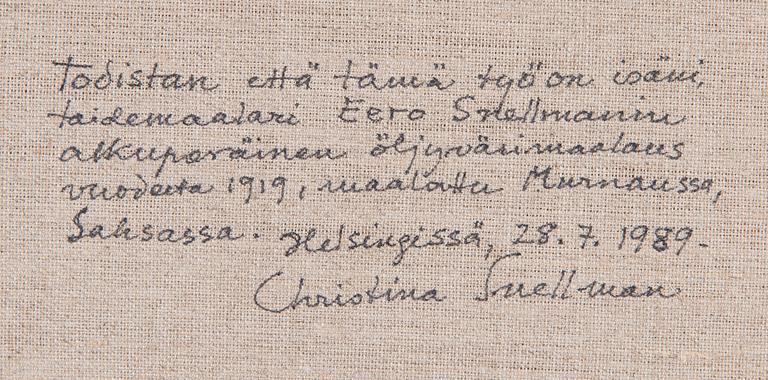 Todistan että tämä työ on isäni,
taidemaalari Eero Snellmanin
alkuperäinen öljyvärimaalaus
vuodelta 1919, maalattu Murnaussa,
Saksassa. Helsingissä, 28.7.1989.
Christina Snellman